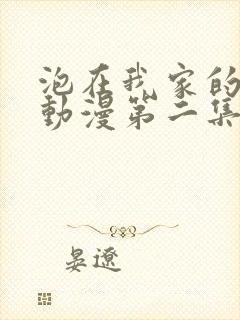 泡在我家的
動漫第二集
晏遼